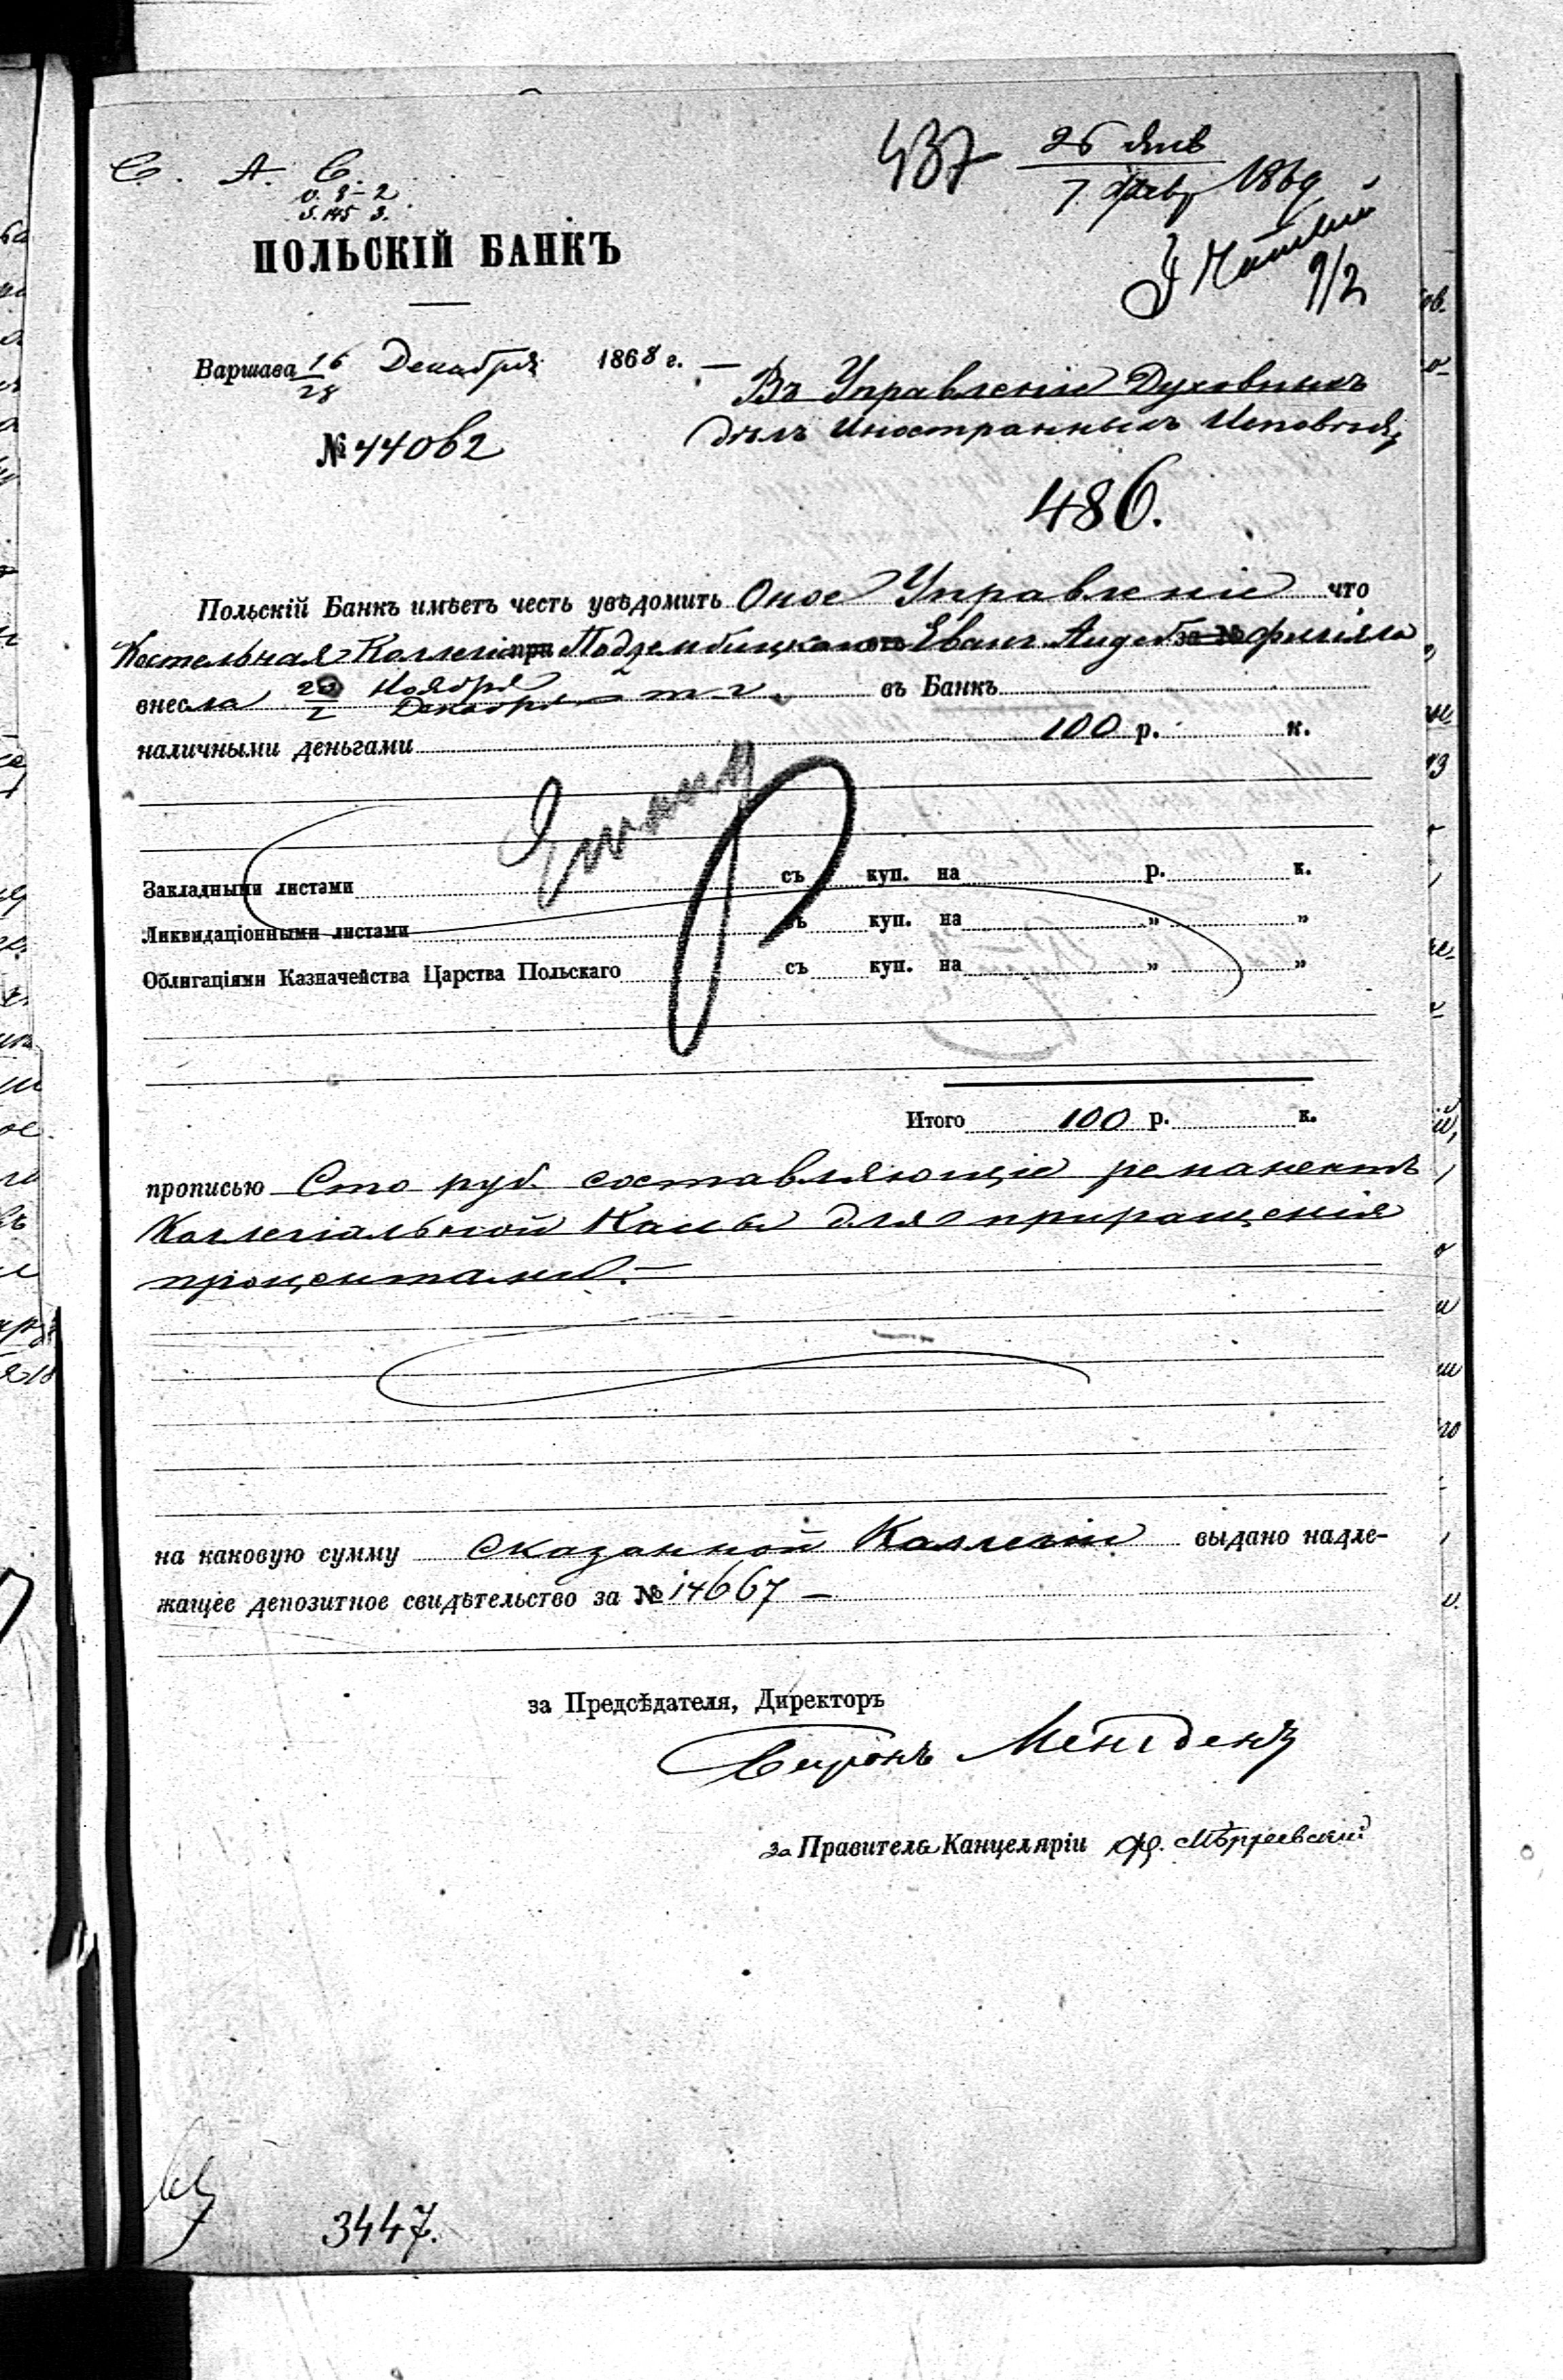 С. А. С.
О. 8–2
S. 145 3.
437 26 Янв
7 Февр 1869
9/2
ПОЛЬСКІЙ БАНКЪ
Варшава 16/28 Декабря 1868 г. —
Въ Управленіе Духовныхъ
дѣлъ Иностранныхъ Исповѣд;
№ 44062
486.
Польскій Банкъ имѣетъ честь увѣдомить Оное Управленіе что
Костельная Коллегія при Еванг. Аугсб за № филіяла
внесла Ноября
Декабря т. г. въ Банкъ
наличными деньгами 100 р. к.
Закладными листами съ куп. на р. к.
Ликвидаціонными листами съ куп. на „ „
Облигаціями Казначейства Царства Польскаго съ куп. на „ „
Итого 100 р. к.
прописью Сто руб. составляющіе реманентъ
Коллегіальной Кассы для приращенія
процентами. —
на каковую сумму сказанной Коллегіи выдано надле-
жащее депозитное свидѣтельство за № 14667 —
за Предсѣдателя, Директоръ
Баронъ Менгденъ
за Правителя Канцеляріи
3447.